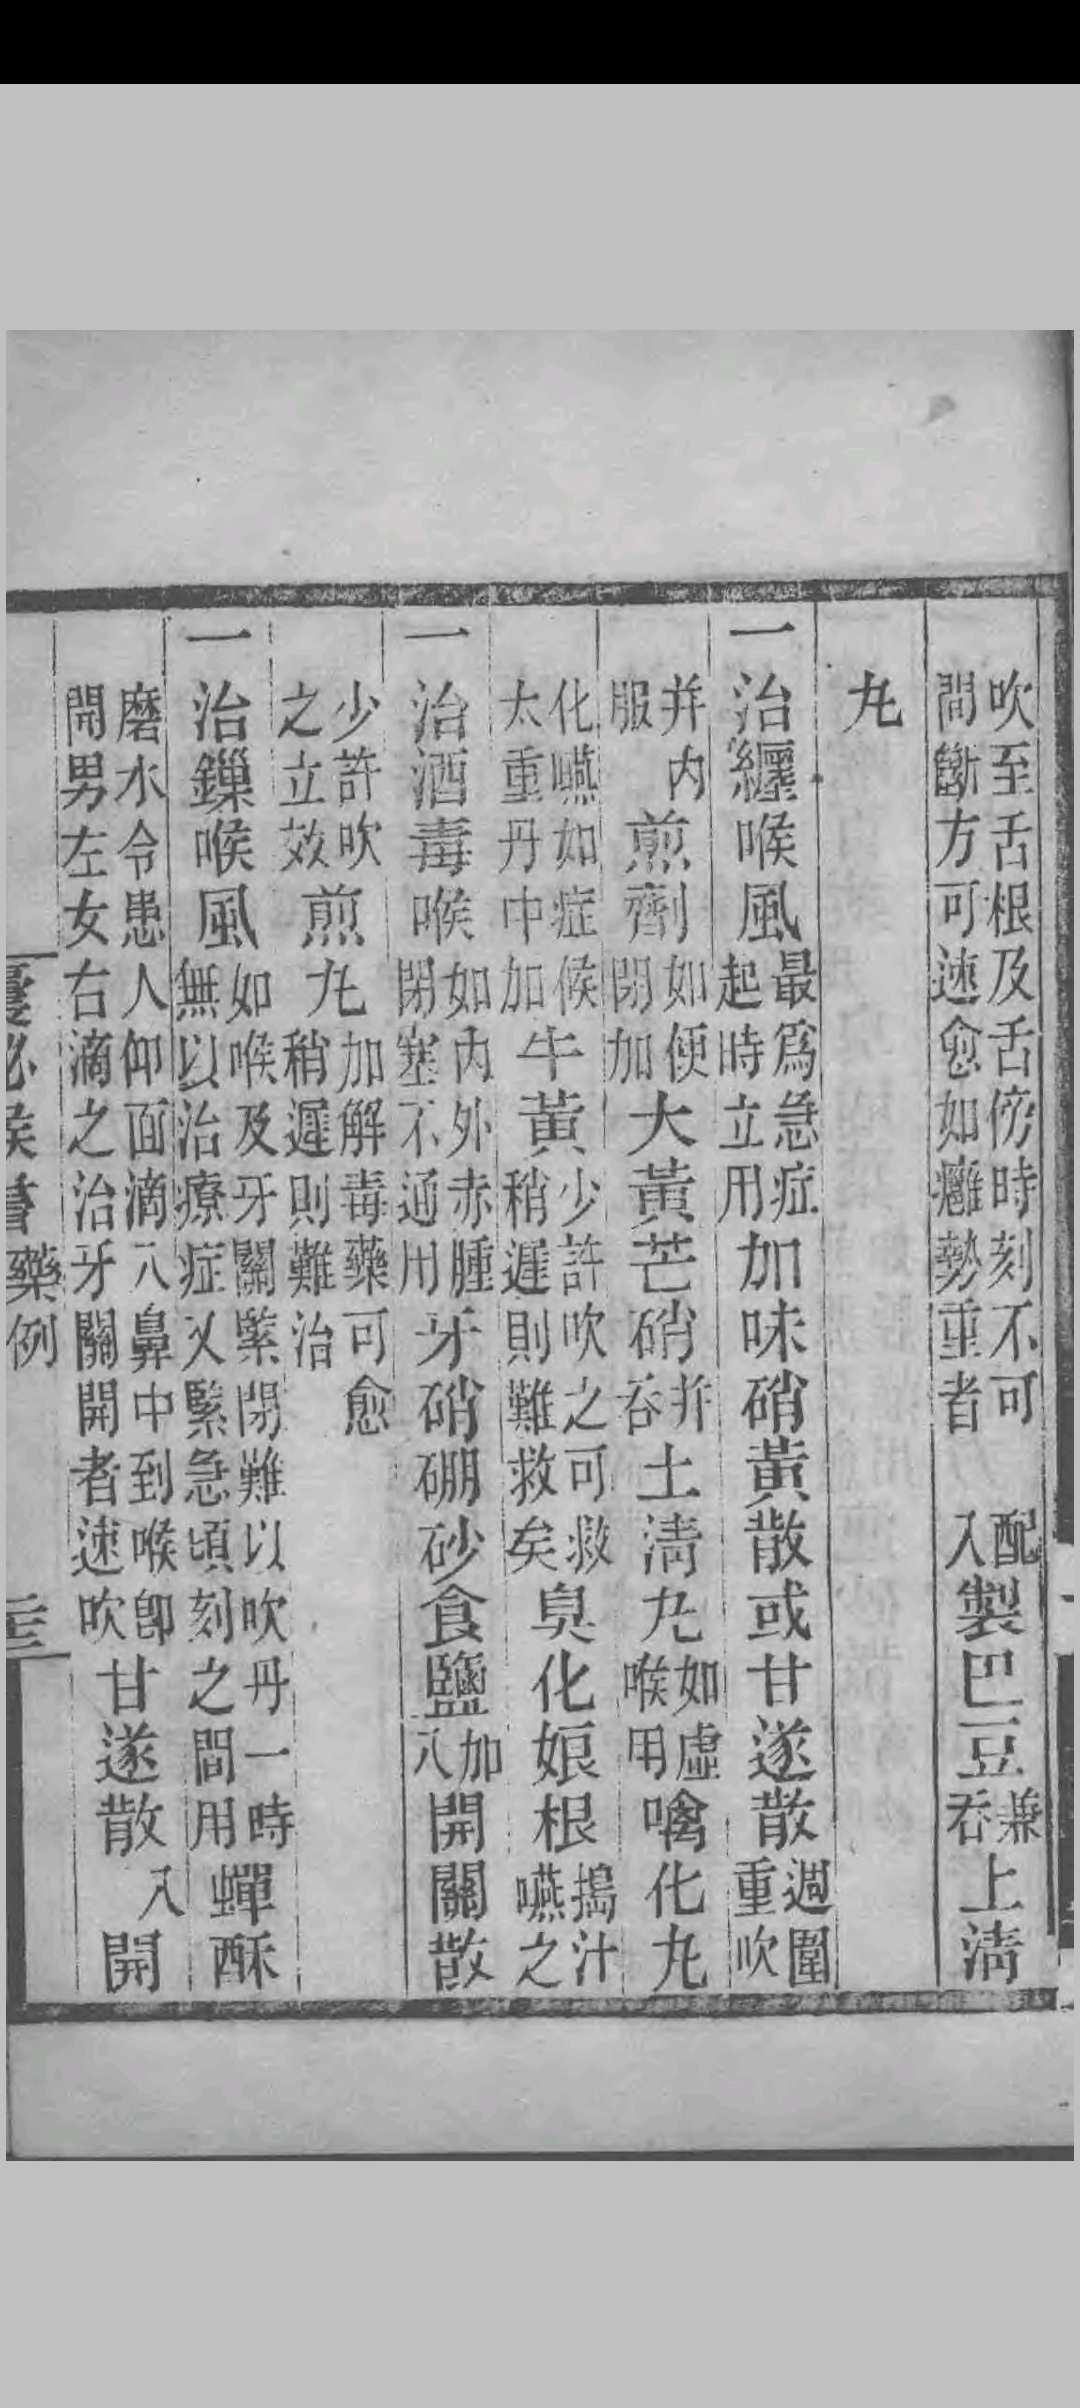 吹至舌根及舌傍時刻不可間斷方可速愈如癰勢重者配入製巴豆兼吞上清
丸
一治纏喉風最爲急症起時立用加味硝黃散或甘遂散週圍重吹
并內服煎劑如便閉加大黃芒硝并吞土清丸如虛喉用噙化丸
化嚥如症候太重丹中加牛黃少許吹之可救稍遲則難救矣臭化娘根搗汁嚥之
一治酒毒喉如內外赤腫閉塞不通用牙硝硼砂食鹽加入開關散
少許吹之立效煎丸加解毒藥可愈稍遲則難治
一治鏁喉風如喉及牙關緊閉難以吹丹一時無以治療症又緊急頃刻之間用蟬酥
磨水令患人仰面滴入鼻中到喉卽開男左女右滴之治牙關開者速吹甘遂散入開
藥例